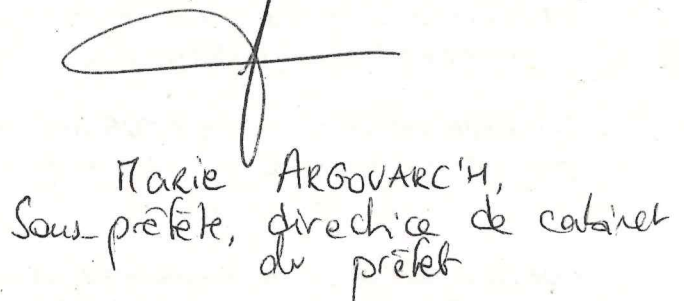 Marie ARGOUARC'H,
Sous-préfète, directrice de cabinet
du préfet